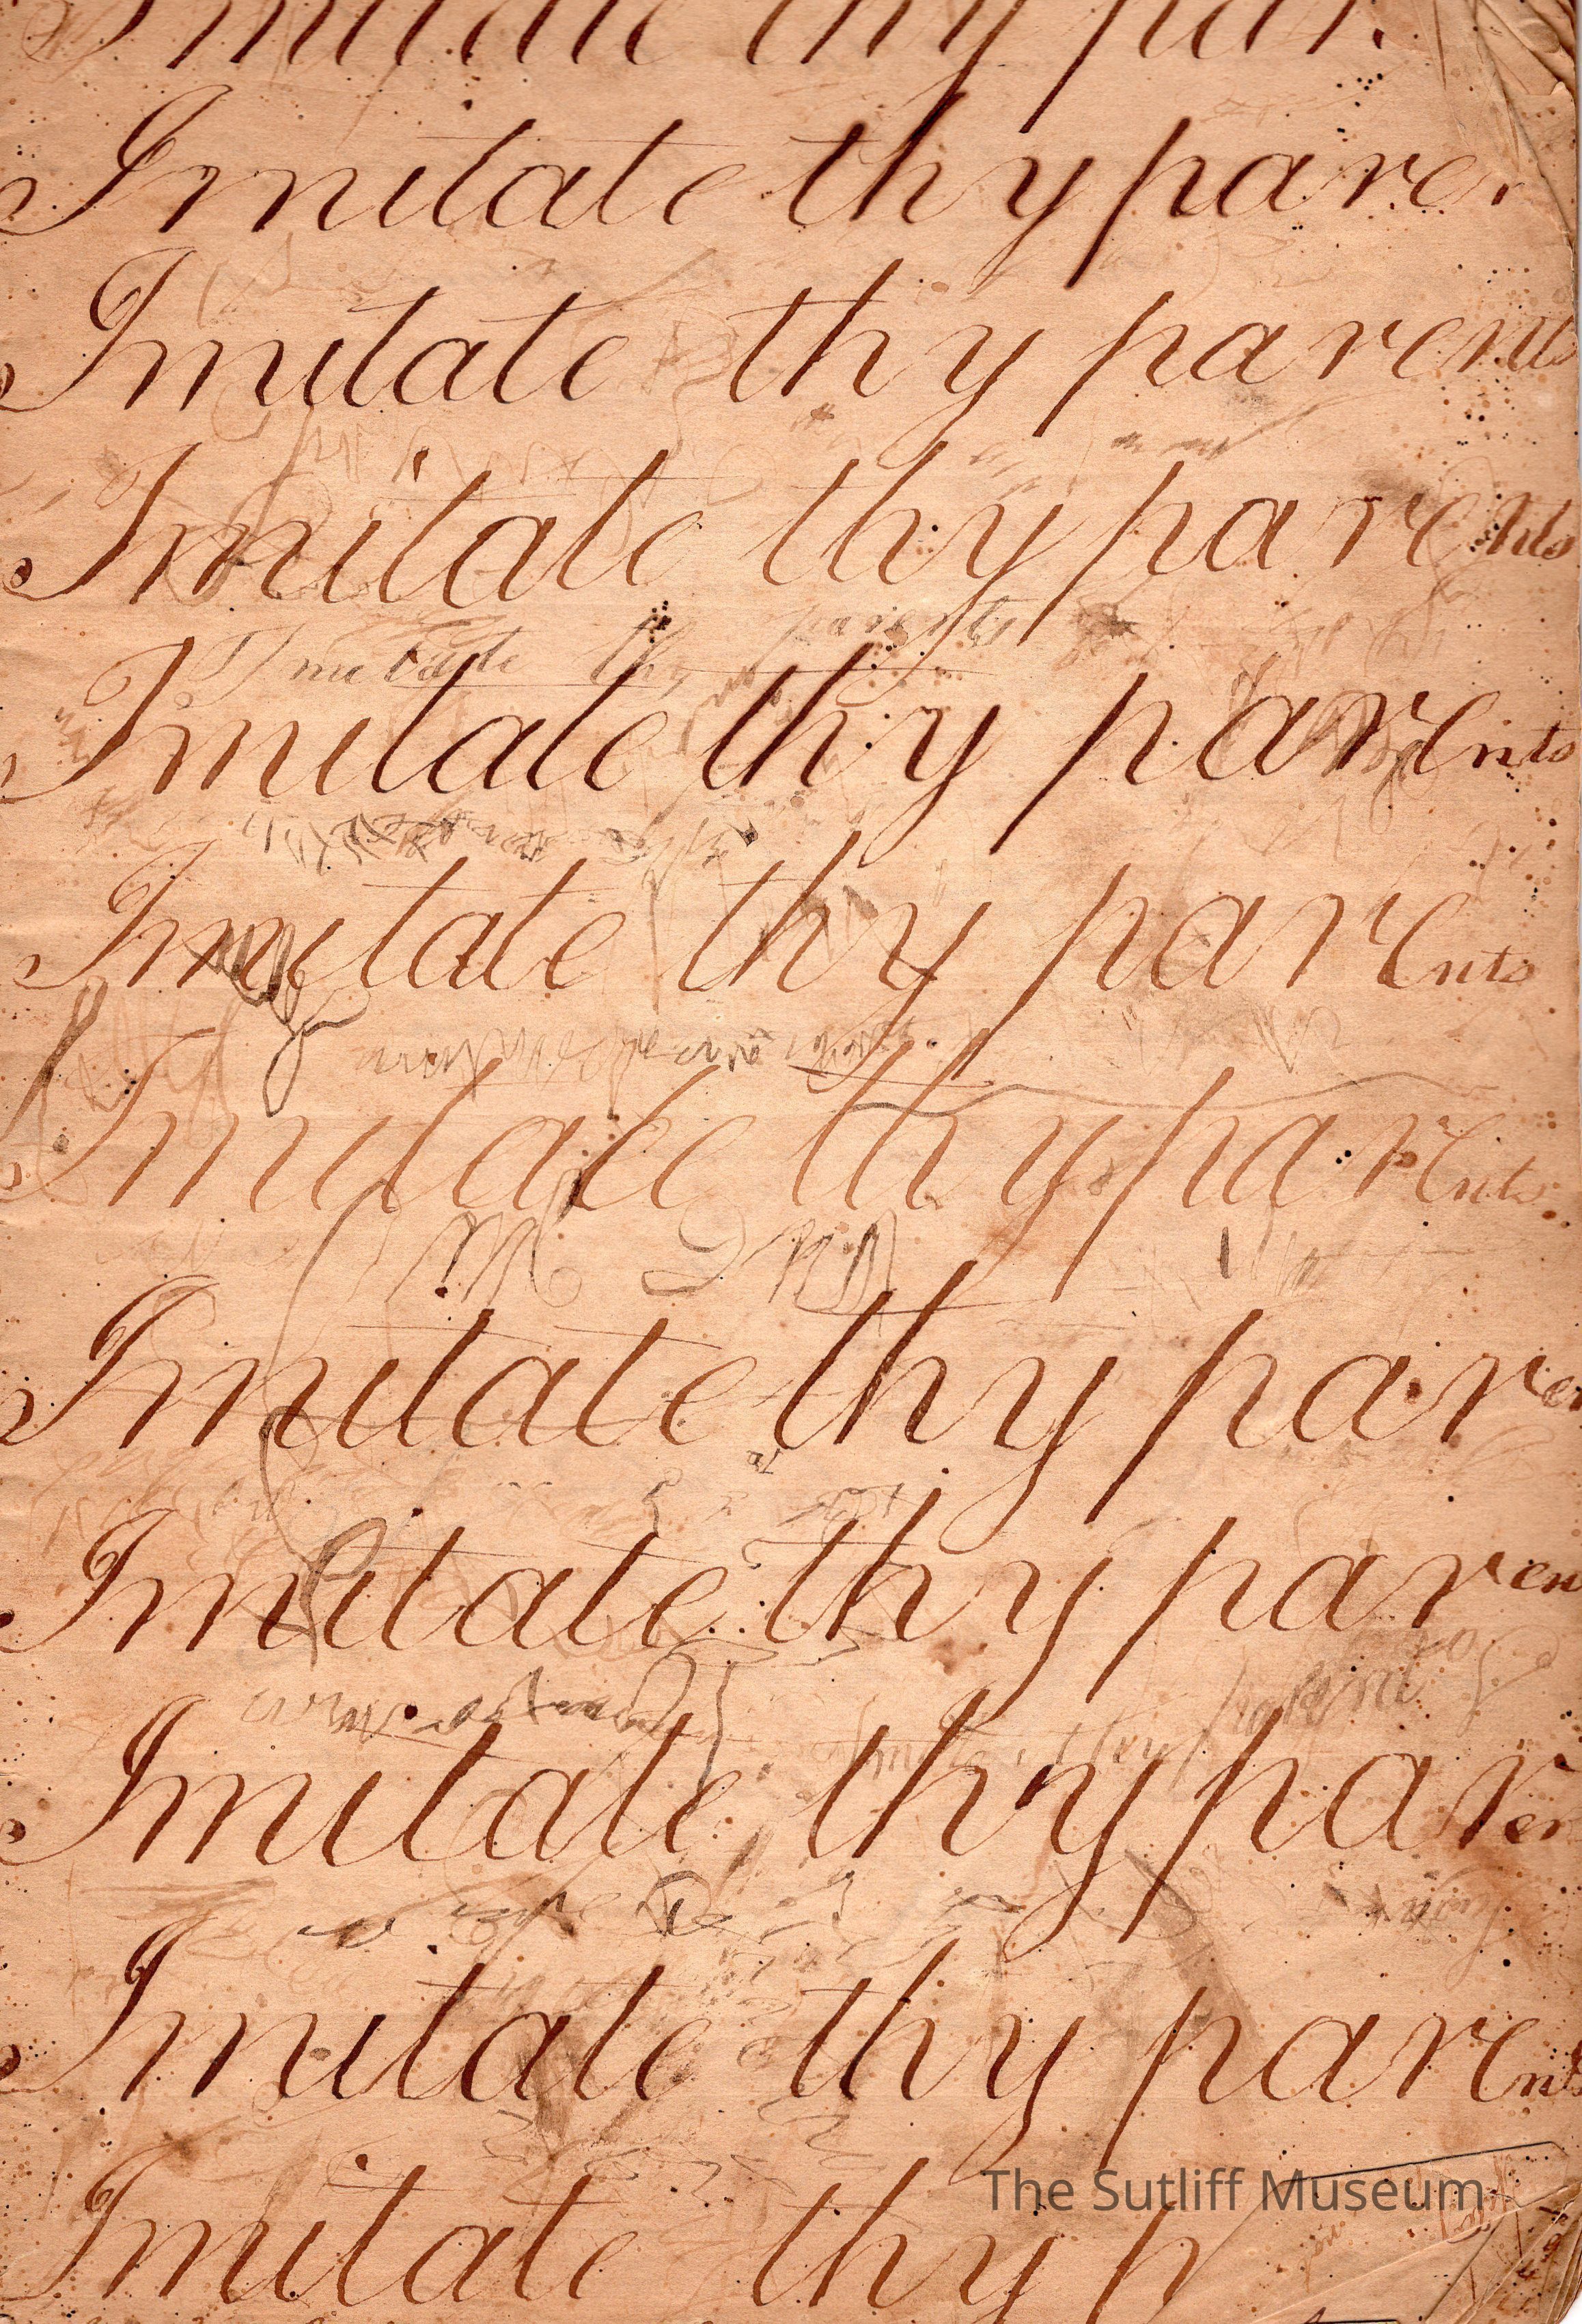 Imitate thy par
Imitate thy paren
Imitate thy parents
Imitate thy parents
Imitate thy parents
Imitate thy parents
Imitate thy parents
Imitate thy parents
Imitate thy paren
Imitate thy paren
Imitate thy paren
Imitate thy parents
Imitate thy p
The Sutliff Museum